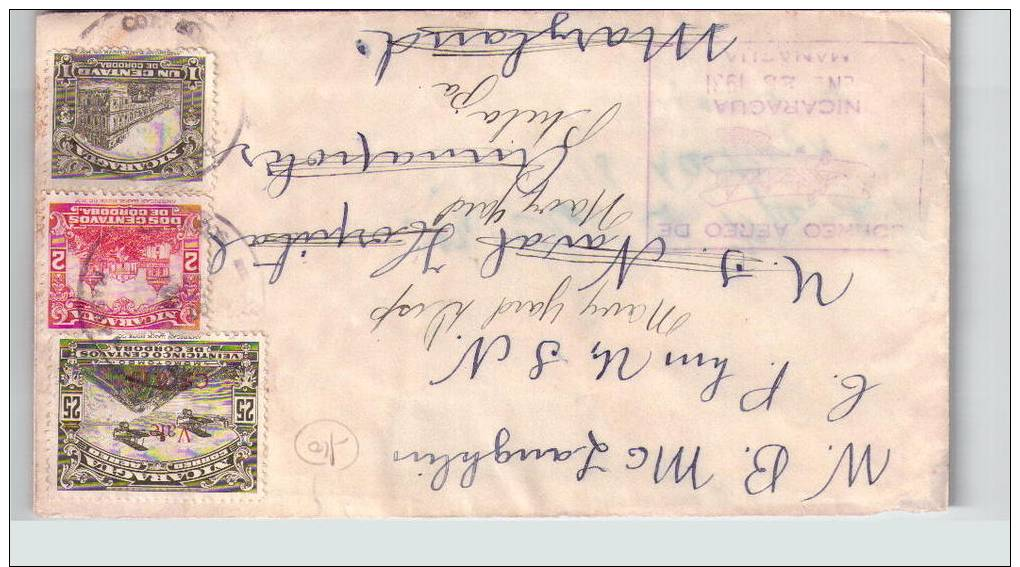 W. B. McLaughlin
C. Phm U. S. N.
Navy Yard Disp
U. S. Naval Hospital
Navy Yard
Annapolis
Phila, Pa
Maryland.
CORREO AEREO DE
NICARAGUA
ENE 28 1931
MANAGUA
NICARAGUA
CORREO AEREO
25 25
Vale
VEINTICINCO CENTAVOS
DE CORDOBA
NICARAGUA
2 2
DOS CENTAVOS
DE CORDOBA
NICARAGUA
1 1
UN CENTAVO
DE CORDOBA